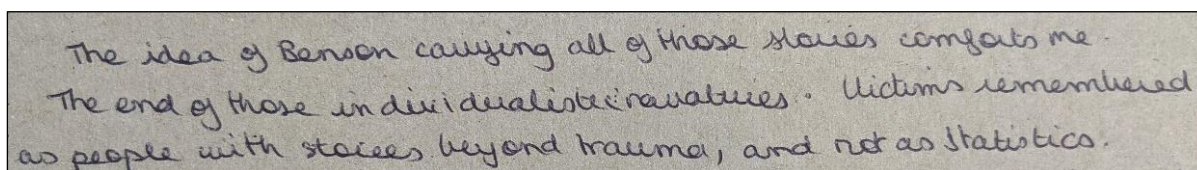 The idea of Benson carrying all of those stories comforts me.
The end of those individualistic narratives. Victims remembered
as people with stories beyond trauma, and not as statistics.